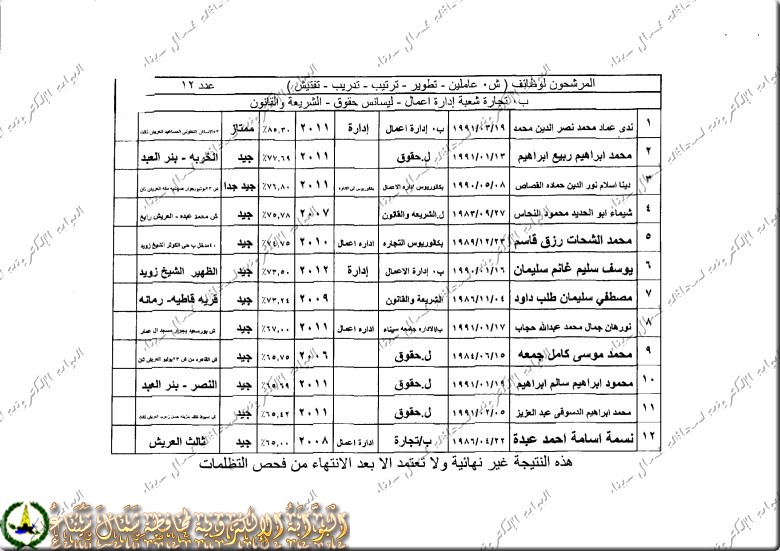 المرشحون لوظائف ( ش٠ عاملين - تطوير - ترتيب - تدريب - تفتيش ) عدد ١٢
ب٠ تجارة شعبة إدارة اعمال - ليسانس حقوق - الشريعة والقانون
١ ندى عماد محمد نصر الدين محمد ١٩٩١/٠٣/١٩ ب٠ إدارة اعمال إدارة ٢٠١١ ٨٥,٣٠٪ ممتاز
٢ محمد ابراهيم ربيع ابراهيم ١٩٩١/٠١/١٣ ل.حقوق ٢٠١١ ٧٧,٦٩٪ جيد الخربه - بئر العبد
٣ دينا اسلام نور الدين حماده القصاص ١٩٩٠/٠٥/٠٨ بكالوريوس اداره الاعمال ٢٠١١ ٧٦,٨٠٪ جيد جدا
٤ شيماء ابو الحديد محمود النحاس ١٩٨٣/٠٩/٢٧ ل.الشريعه والقانون ٢٠٠٧ ٧٥,٧٨٪ جيد ش محمد عبده - العريش رابع
٥ محمد الشحات رزق قاسم ١٩٨٩/١٢/٢٣ بكالوريوس التجاره اداره اعمال ٢٠١٠ ٧٤,٧٥٪ جيد
٦ يوسف سليم غانم سليمان ١٩٩٠/٠١/١٦ ب٠ إدارة الاعمال إدارة ٢٠١٢ ٧٣,٥٠٪ جيد الظهير الشيخ زويد
٧ مصطفي سليمان طلب داود ١٩٨٦/١١/٠٤ الشريعة والقانون ٢٠٠٩ ٧٣,٢٤٪ جيد قريه قاطيه- رمانه
٨ نورهان جمال محمد عبدالله حجاب ١٩٩١/٠١/١٧ ب/الاداره جامعه سيناء اداره اعمال ٢٠١١ ٦٧,٠٠٪ جيد
٩ محمد موسى كامل جمعه ١٩٨٤/٠٦/١٥ ل.حقوق ٢٠٠٦ ٦٥,٧٥٪ جيد
١٠ محمود ابراهيم سالم ابراهيم ١٩٩١/٠١/١٩ ل.حقوق ٢٠١١ ٦٥,٦٩٪ جيد النصر - بئر العبد
١١ محمد ابراهيم الدسوقى عبد العزيز ١٩٩١/٠٢/٠٥ ل.حقوق ٢٠١١ ٦٥,٤٢٪ جيد
١٢ نسمة اسامة احمد عبدة ١٩٨٦/٠٤/٢٢ ب/تجارة ادارة اعمال ٢٠٠٨ ٦٥,٠٠٪ جيد ثالث العريش
هذه النتيجة غير نهائية ولا تعتمد الا بعد الانتهاء من فحص التظلمات
البوابة الإلكترونية لمحافظة شمال سيناء